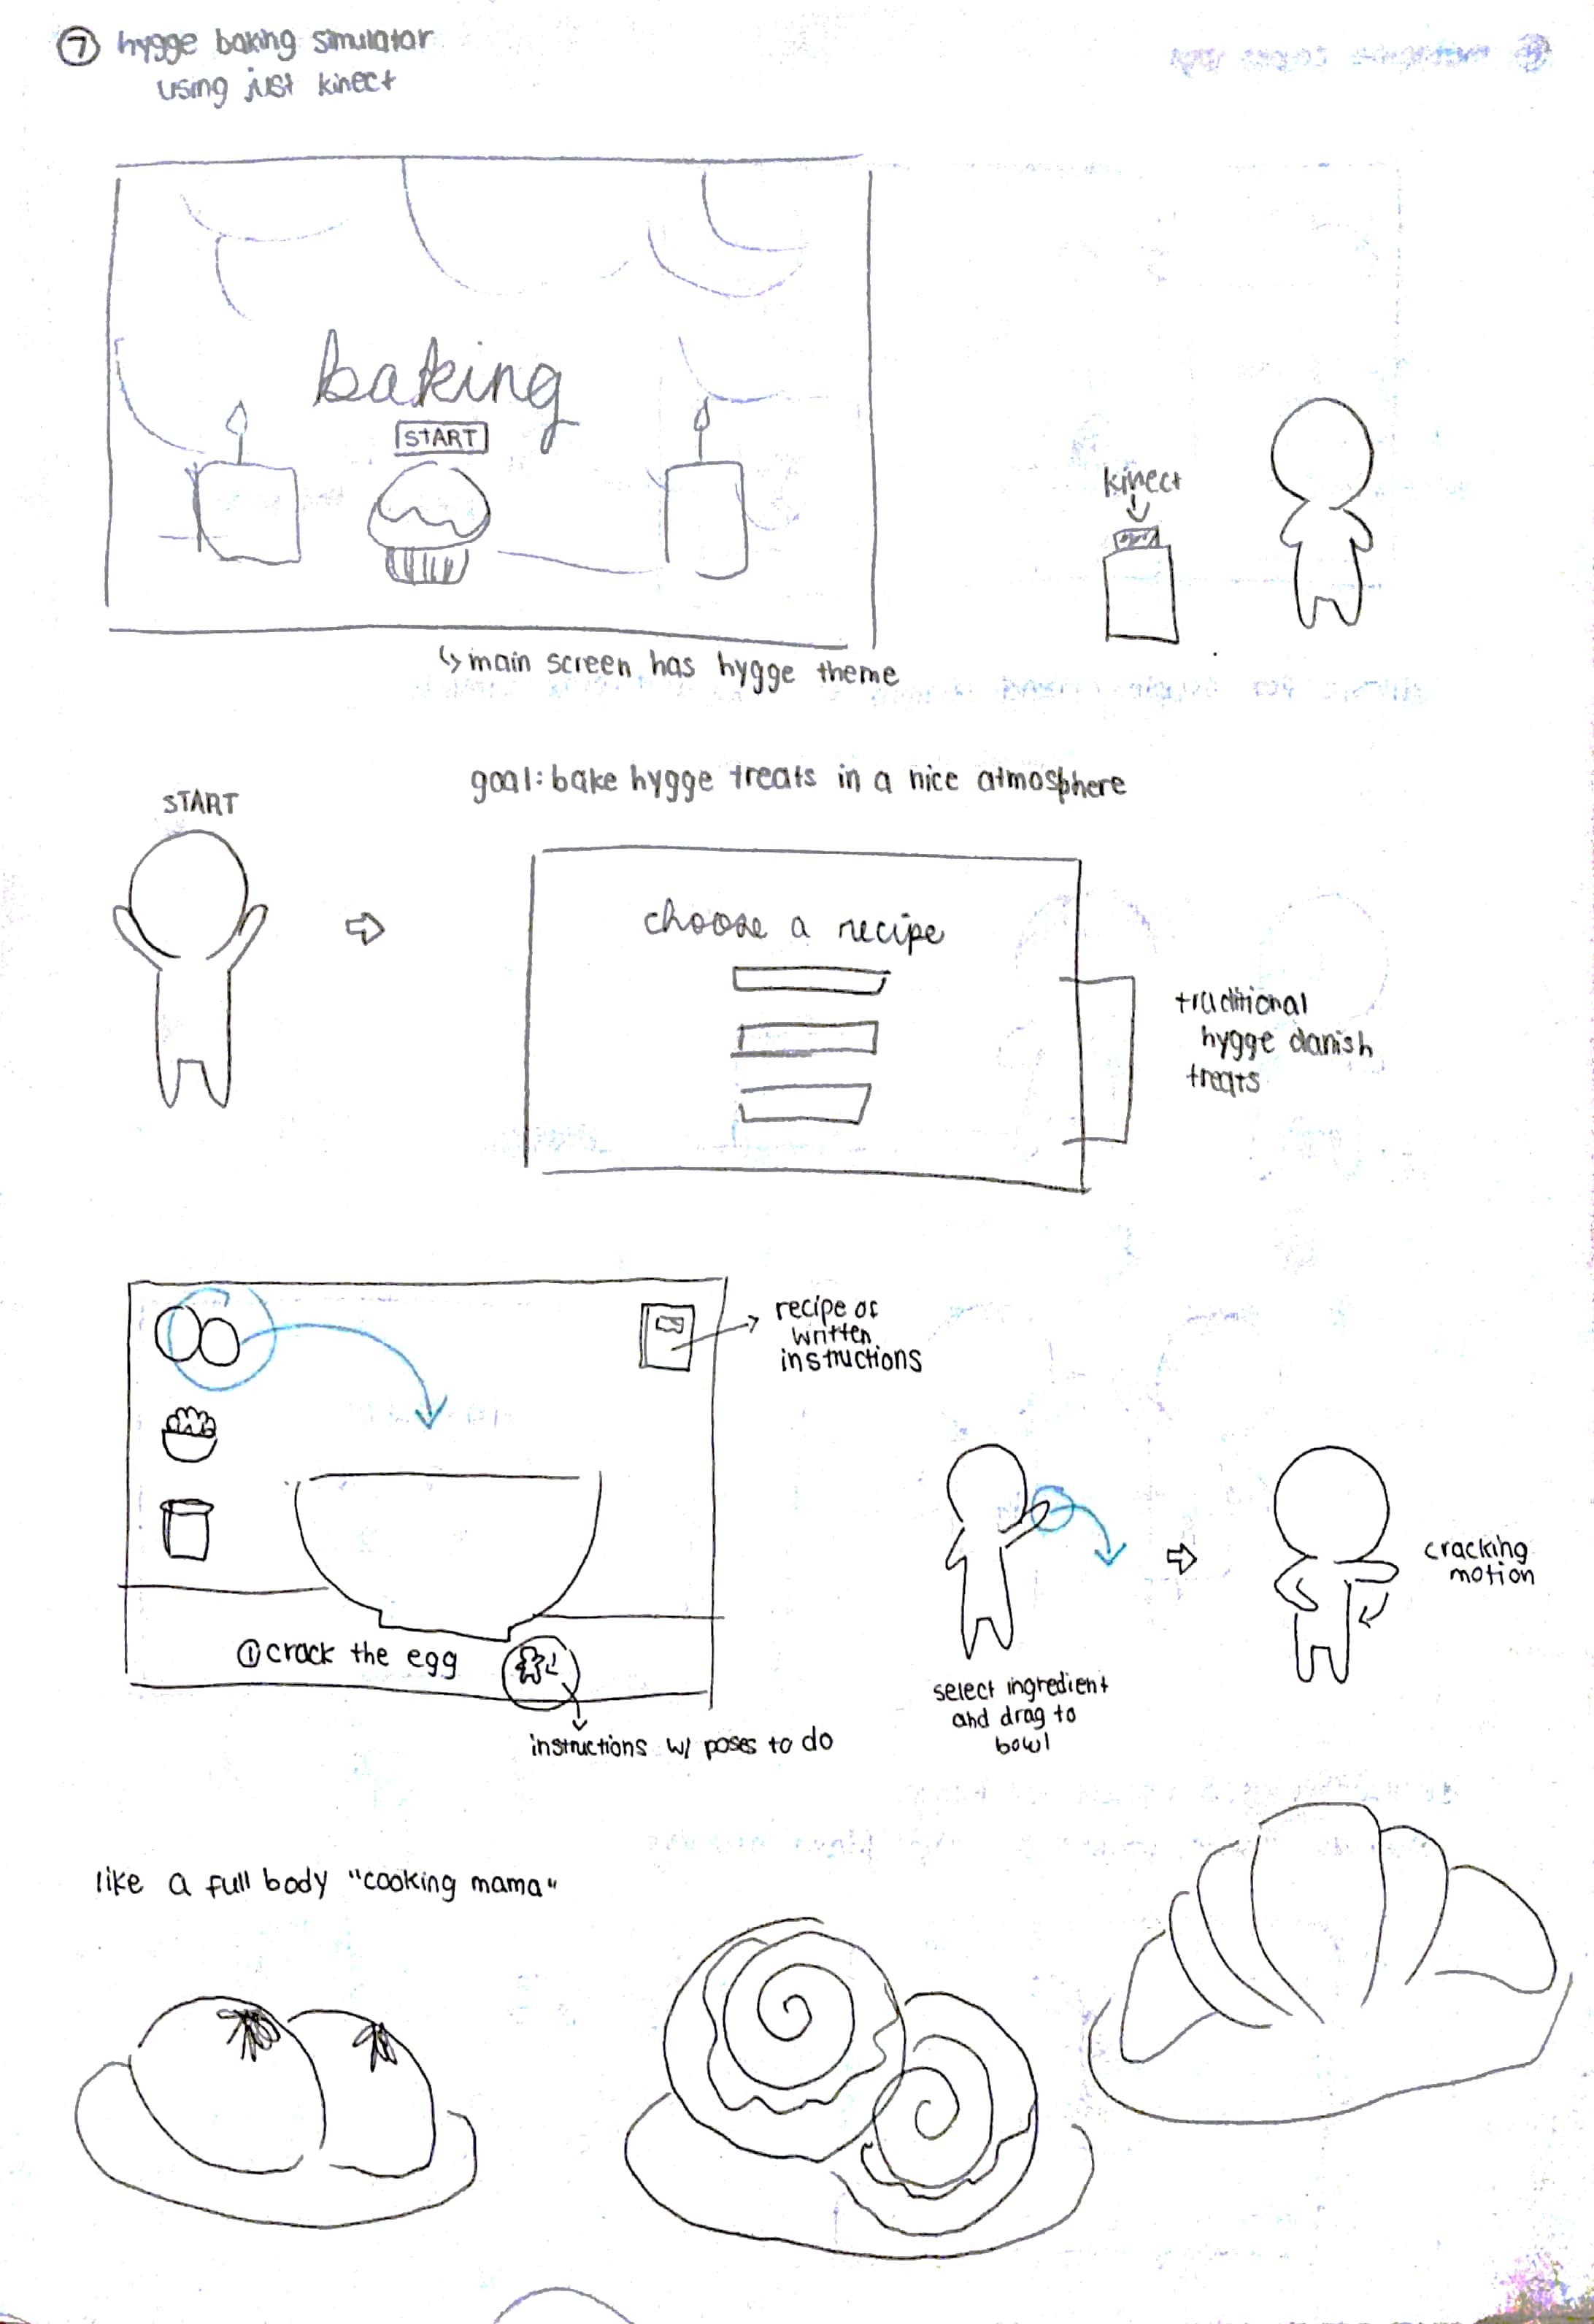 ⑦ hygge baking simulator
using just kinect
baking
START
kinect
↳ main screen has hygge theme
goal: bake hygge treats in a nice atmosphere
START
choose a recipe
traditional
hygge danish
treats
recipe of
written
instructions
① crack the egg
instructions w/ poses to do
select ingredient
and drag to
bowl
cracking
motion
like a full body "cooking mama"